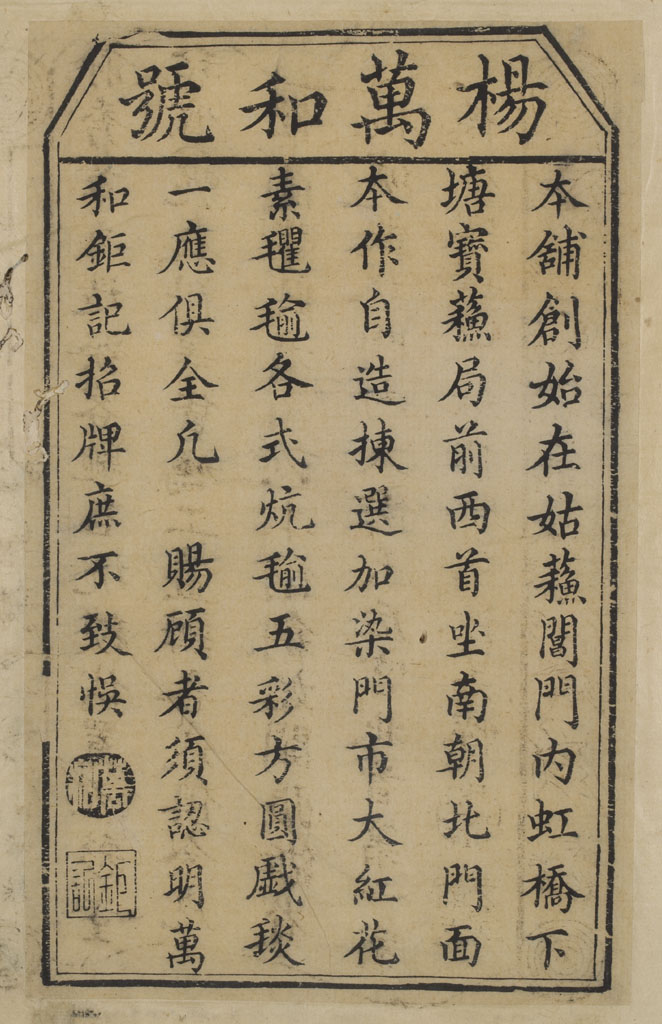 楊萬和號
本舖創始在姑蘓閶門内虹橋下
塘寶蘓局前西首坐南朝北門面
本作自造揀選加染門市大紅花
素氍毹各式炕毹五彩方圓戲毯
一應俱全凢 賜顧者須認明萬
和鉅記招牌庶不致悞
萬和
鉅記